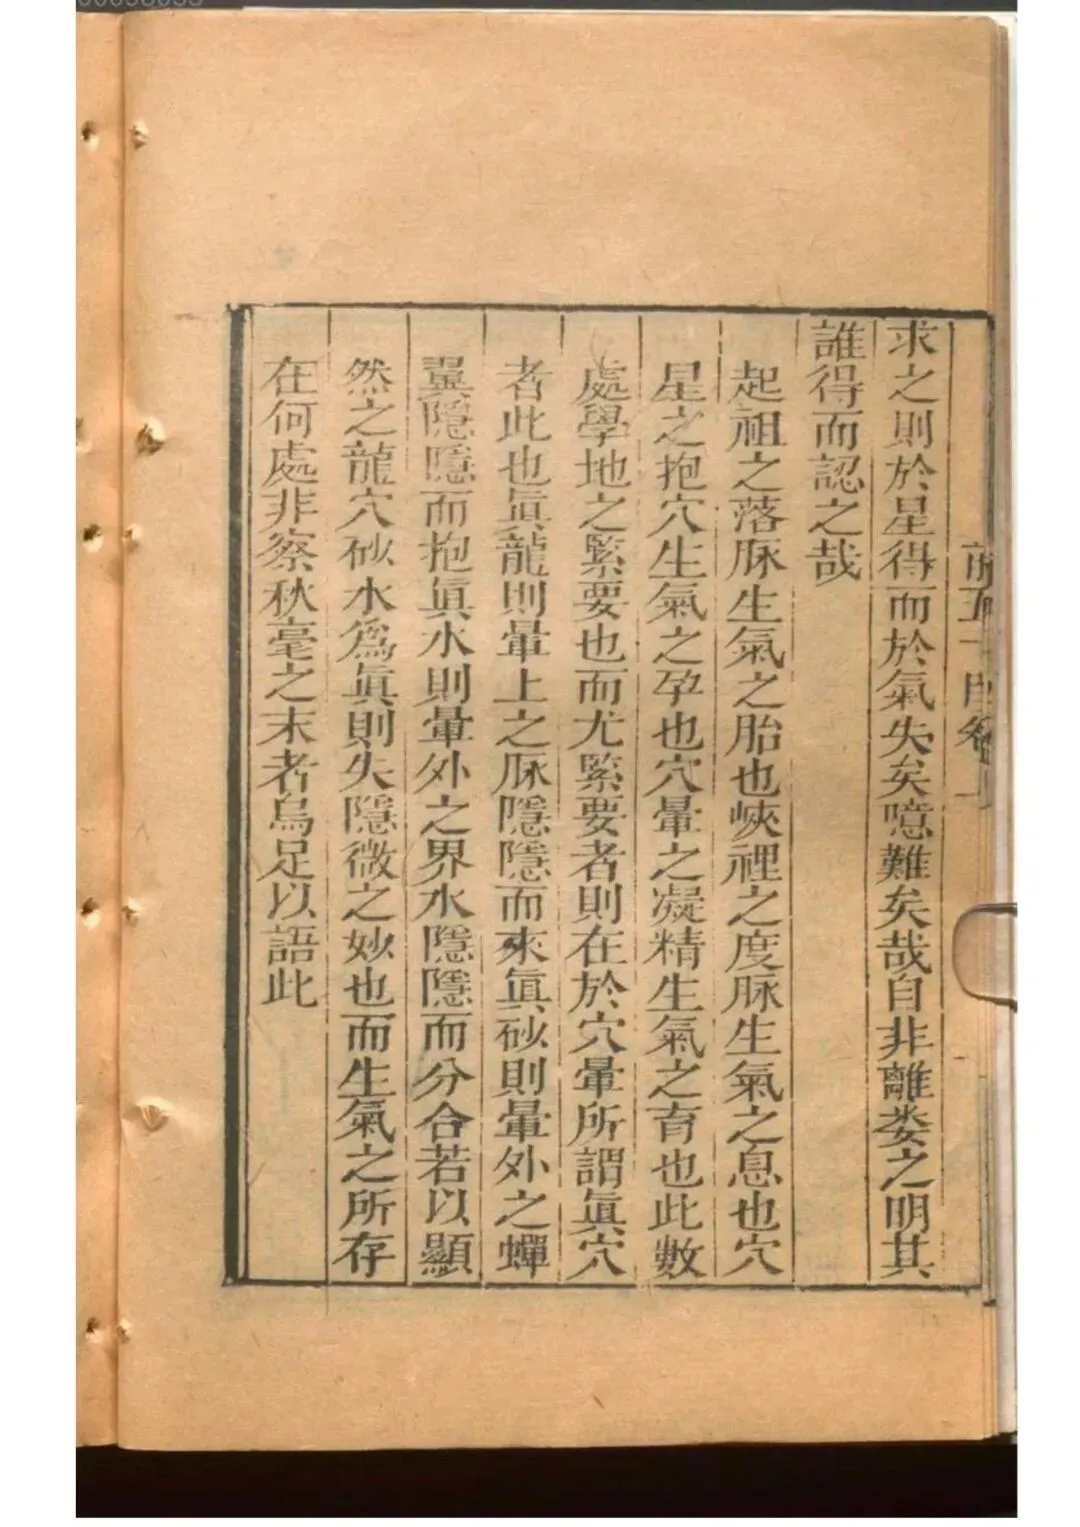 求之則於星得而於氣失矣噫難矣哉自非離婁之明其
誰得而認之哉
起祖之落脉生氣之胎也峽裡之度脉生氣之息也穴
星之抱穴生氣之孕也穴暈之凝精生氣之育也此數
處學地之緊要也而尤緊要者則在於穴暈所謂眞穴
者此也眞龍則暈上之脉隱隱而來眞砂則暈外之蟬
翼隱隱而抱眞水則暈外之界水隱隱而分合若以顯
然之龍穴砂水爲眞則失隱微之妙也而生氣之所存
在何處非察秋毫之末者烏足以語此